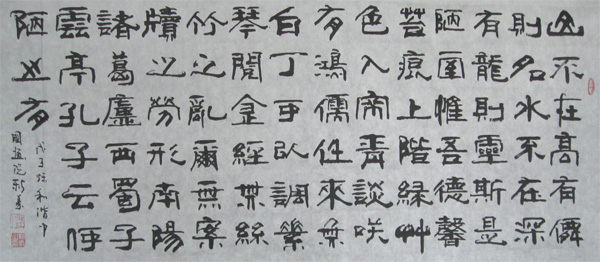 山不在高有僊
則名水不在深
有龍則靈斯是
陋室惟吾德馨
苔痕上階綠艸
色入帘青談咲
有鴻儒往來無
白丁可以調素
琴閱金經無絲
竹之亂爾無案
牘之勞形南陽
諸葛廬西蜀子
雲亭孔子云何
陋之有
戊子於和諧中
國畫院